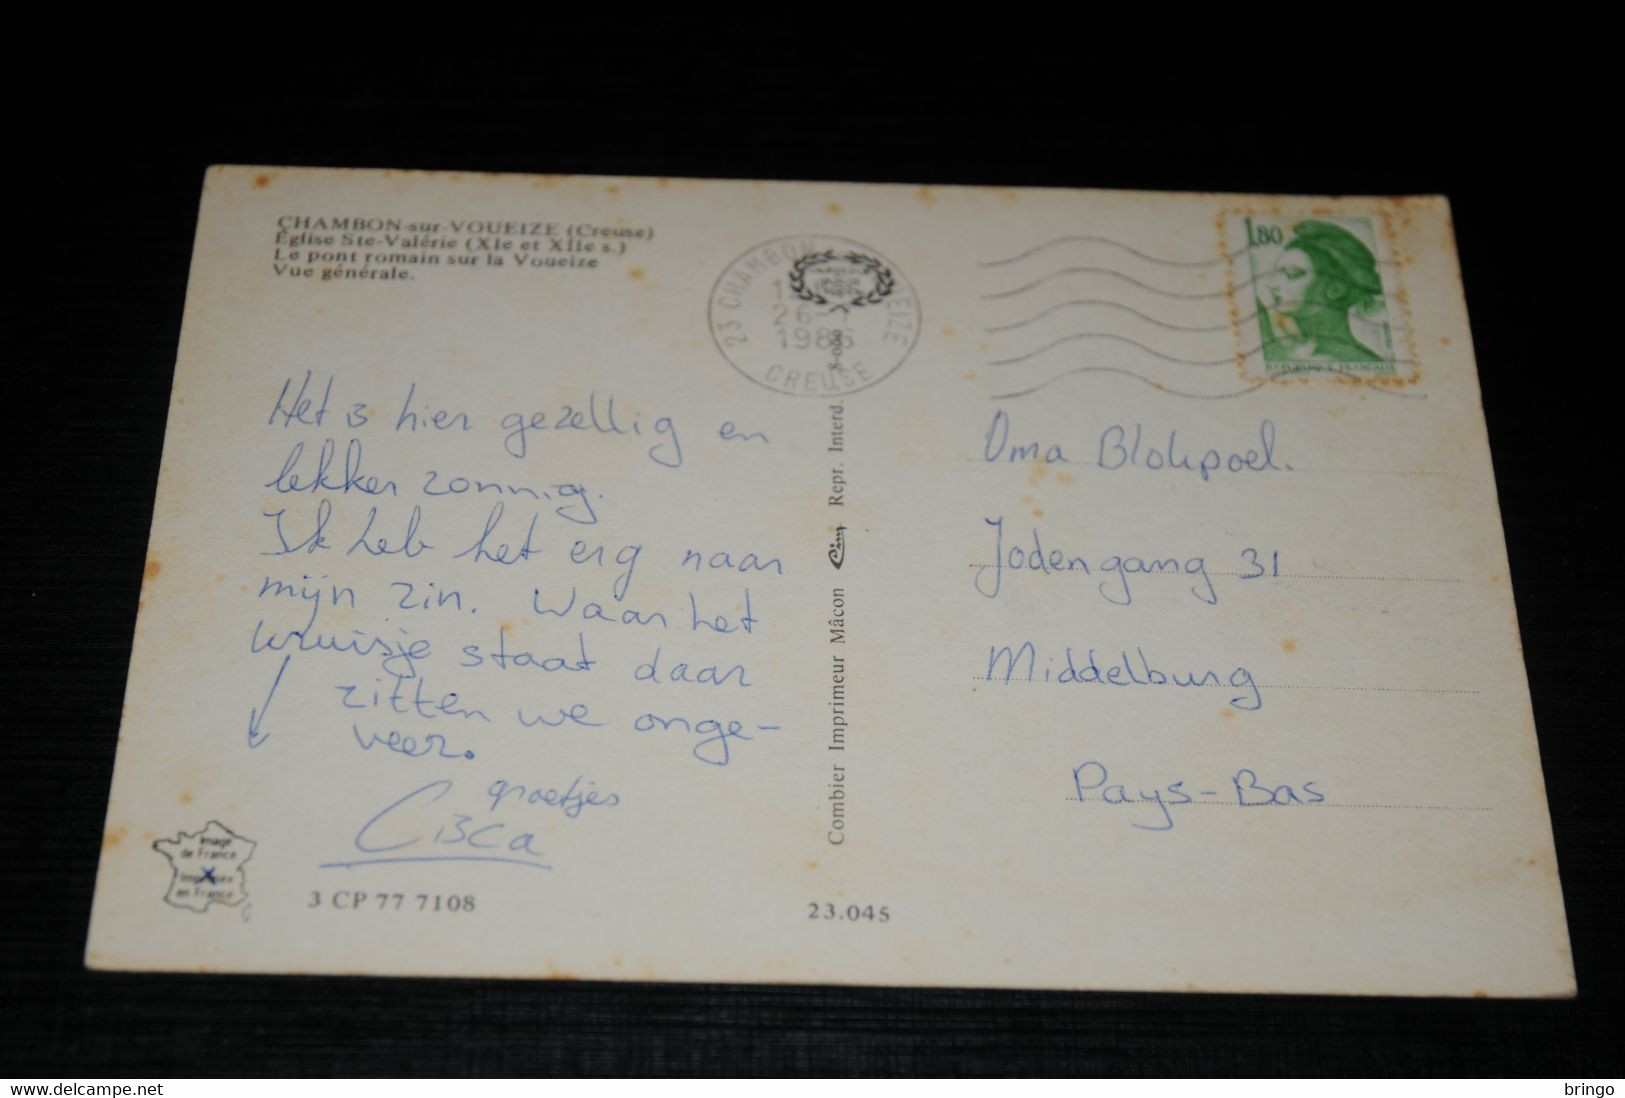 CHAMBON-sur-VOUEIZE (Creuse)
Église Ste-Valérie (XIe et XIIe s.)
Le pont romain sur la Voueize
Vue générale.
23 CHAMBON
EIZE
26-
1986
CREUSE
1,80
REPUBLIQUE FRANÇAISE
Het is hier gezellig en
lekker zonnig.
Ik heb het erg naar
mijn zin. Waar het
kruisje staat daar
zitten we onge-
veer.
groetjes
Cisca
Oma Blokpoel.
Jodengang 31
Middelburg
Pays-Bas
Combier Imprimeur Mâcon Cim Repr. Interd.
image
de France
Imprimée
en France
3 CP 77 7108
23.045
www.delcampe.net
bringo